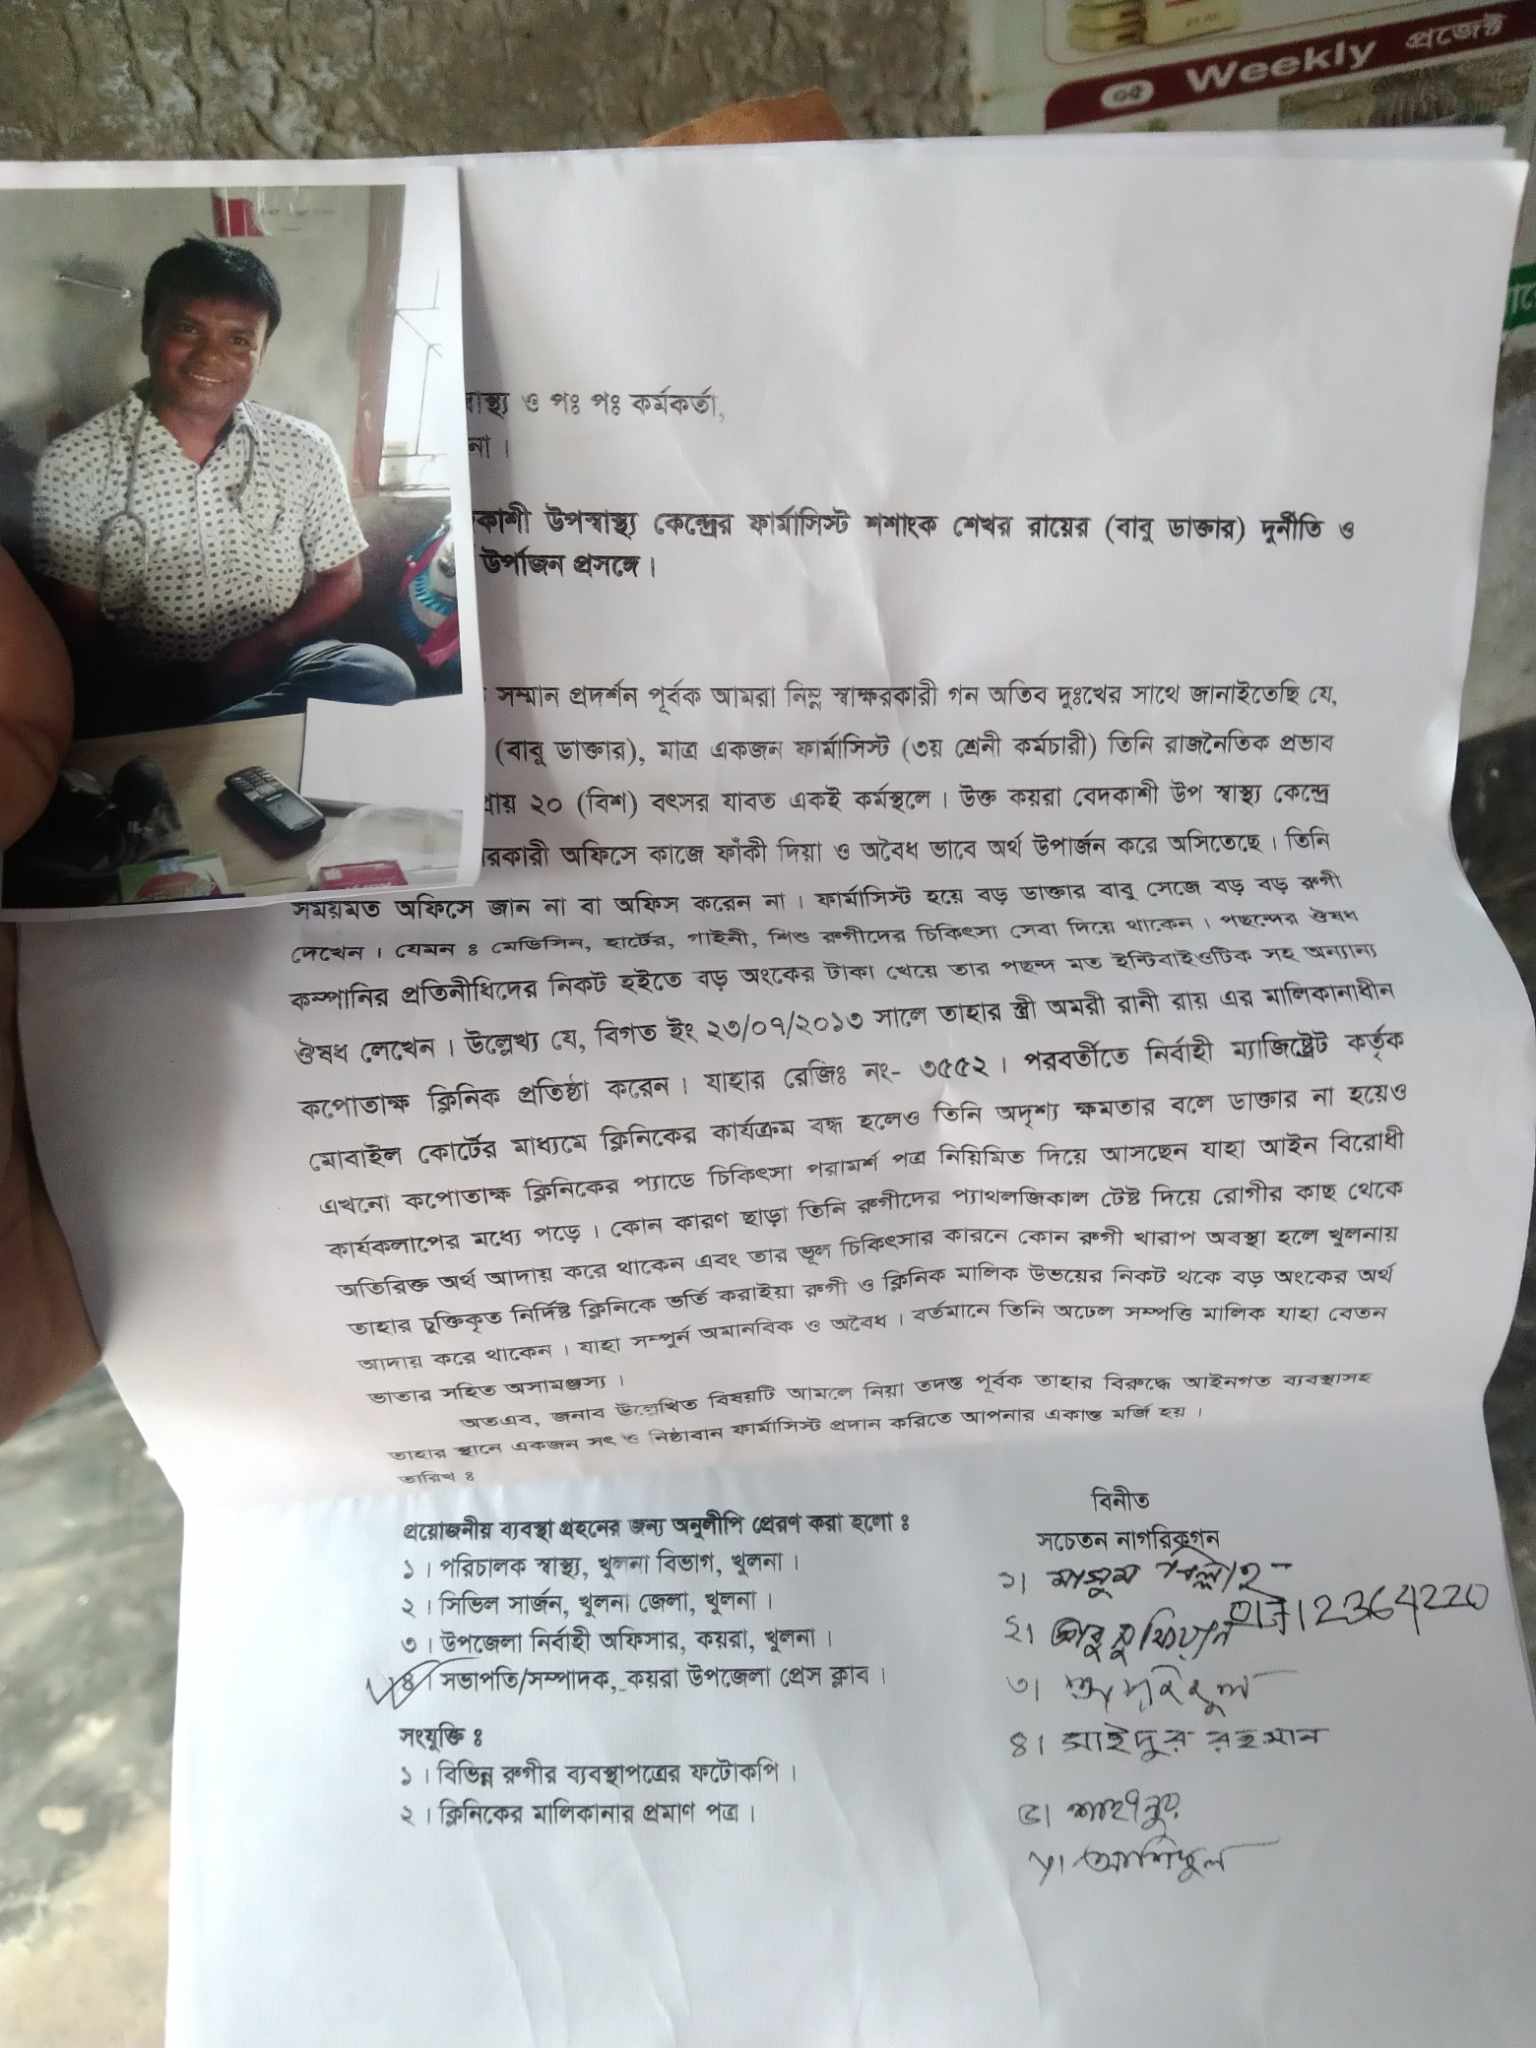 ০৫ Weekly প্রজেক্ট
স্থ্য ও পঃ পঃ কর্মকর্তা,
না ।
কাশী উপস্বাস্থ্য কেন্দ্রের ফার্মাসিস্ট শশাংক শেখর রায়ের (বাবু ডাক্তার) দুর্নীতি ও
উর্পাজন প্রসঙ্গে ।
সম্মান প্রদর্শন পূর্বক আমরা নিম্ন স্বাক্ষরকারী গন অতিব দুঃখের সাথে জানাইতেছি যে,
(বাবু ডাক্তার), মাত্র একজন ফার্মাসিস্ট (৩য় শ্রেনী কর্মচারী) তিনি রাজনৈতিক প্রভাব
প্রায় ২০ (বিশ) বৎসর যাবত একই কর্মস্থলে । উক্ত কয়রা বেদকাশী উপ স্বাস্থ্য কেন্দ্রে
রকারী অফিসে কাজে ফাঁকী দিয়া ও অবৈধ ভাবে অর্থ উপার্জন করে অসিতেছে । তিনি
সময়মত অফিসে জান না বা অফিস করেন না । ফার্মাসিস্ট হয়ে বড় ডাক্তার বাবু সেজে বড় বড় রুগী
দেখেন । যেমন ঃ মেডিসিন, হার্টের, গাইনী, শিশু রুগীদের চিকিৎসা সেবা দিয়ে থাকেন । পছন্দের ঔষধ
কম্পানির প্রতিনীধিদের নিকট হইতে বড় অংকের টাকা খেয়ে তার পছন্দ মত ইন্টিবাইওটিক সহ অন্যান্য
ঔষধ লেখেন । উল্লেখ্য যে, বিগত ইং ২৩/০৭/২০১৩ সালে তাহার স্ত্রী অমরী রানী রায় এর মালিকানাধীন
কপোতাক্ষ ক্লিনিক প্রতিষ্ঠা করেন । যাহার রেজিঃ নং- ৩৫৫২ । পরবর্তীতে নির্বাহী ম্যাজিষ্ট্রেট কর্তৃক
মোবাইল কোর্টের মাধ্যমে ক্লিনিকের কার্যক্রম বন্ধ হলেও তিনি অদৃশ্য ক্ষমতার বলে ডাক্তার না হয়েও
এখনো কপোতাক্ষ ক্লিনিকের প্যাডে চিকিৎসা পরামর্শ পত্র নিয়িমিত দিয়ে আসছেন যাহা আইন বিরোধী
কার্যকলাপের মধ্যে পড়ে । কোন কারণ ছাড়া তিনি রুগীদের প্যাথলজিকাল টেষ্ট দিয়ে রোগীর কাছ থেকে
অতিরিক্ত অর্থ আদায় করে থাকেন এবং তার ভূল চিকিৎসার কারনে কোন রুগী খারাপ অবস্থা হলে খুলনায়
তাহার চুক্তিকৃত নির্দিষ্ট ক্লিনিকে ভর্তি করাইয়া রুগী ও ক্লিনিক মালিক উভয়ের নিকট থকে বড় অংকের অর্থ
আদায় করে থাকেন । যাহা সম্পুর্ন অমানবিক ও অবৈধ । বর্তমানে তিনি অঢেল সম্পত্তি মালিক যাহা বেতন
ভাতার সহিত অসামঞ্জস্য ।
অতএব, জনাব উল্লেখিত বিষয়টি আমলে নিয়া তদন্ত পূর্বক তাহার বিরুদ্ধে আইনগত ব্যবস্থাসহ
তাহার স্থানে একজন সৎ ও নিষ্ঠাবান ফার্মাসিস্ট প্রদান করিতে আপনার একান্ত মর্জি হয় ।
তারিখ ঃ
প্রয়োজনীয় ব্যবস্থা গ্রহনের জন্য অনুলীপি প্রেরণ করা হলো ঃ
১ । পরিচালক স্বাস্থ্য, খুলনা বিভাগ, খুলনা ।
২ । সিভিল সার্জন, খুলনা জেলা, খুলনা ।
৩ । উপজেলা নির্বাহী অফিসার, কয়রা, খুলনা ।
৪ । সভাপতি/সম্পাদক, কয়রা উপজেলা প্রেস ক্লাব ।
সংযুক্তি ঃ
১ । বিভিন্ন রুগীর ব্যবস্থাপত্রের ফটোকপি ।
২ । ক্লিনিকের মালিকানার প্রমাণ পত্র ।
বিনীত
সচেতন নাগরিকগন
১। মাসুম বিল্লাহ
২। আবু সুফিয়ান
৩।
৪। সাইদুর রহমান
৫।
৬। আশিকুল